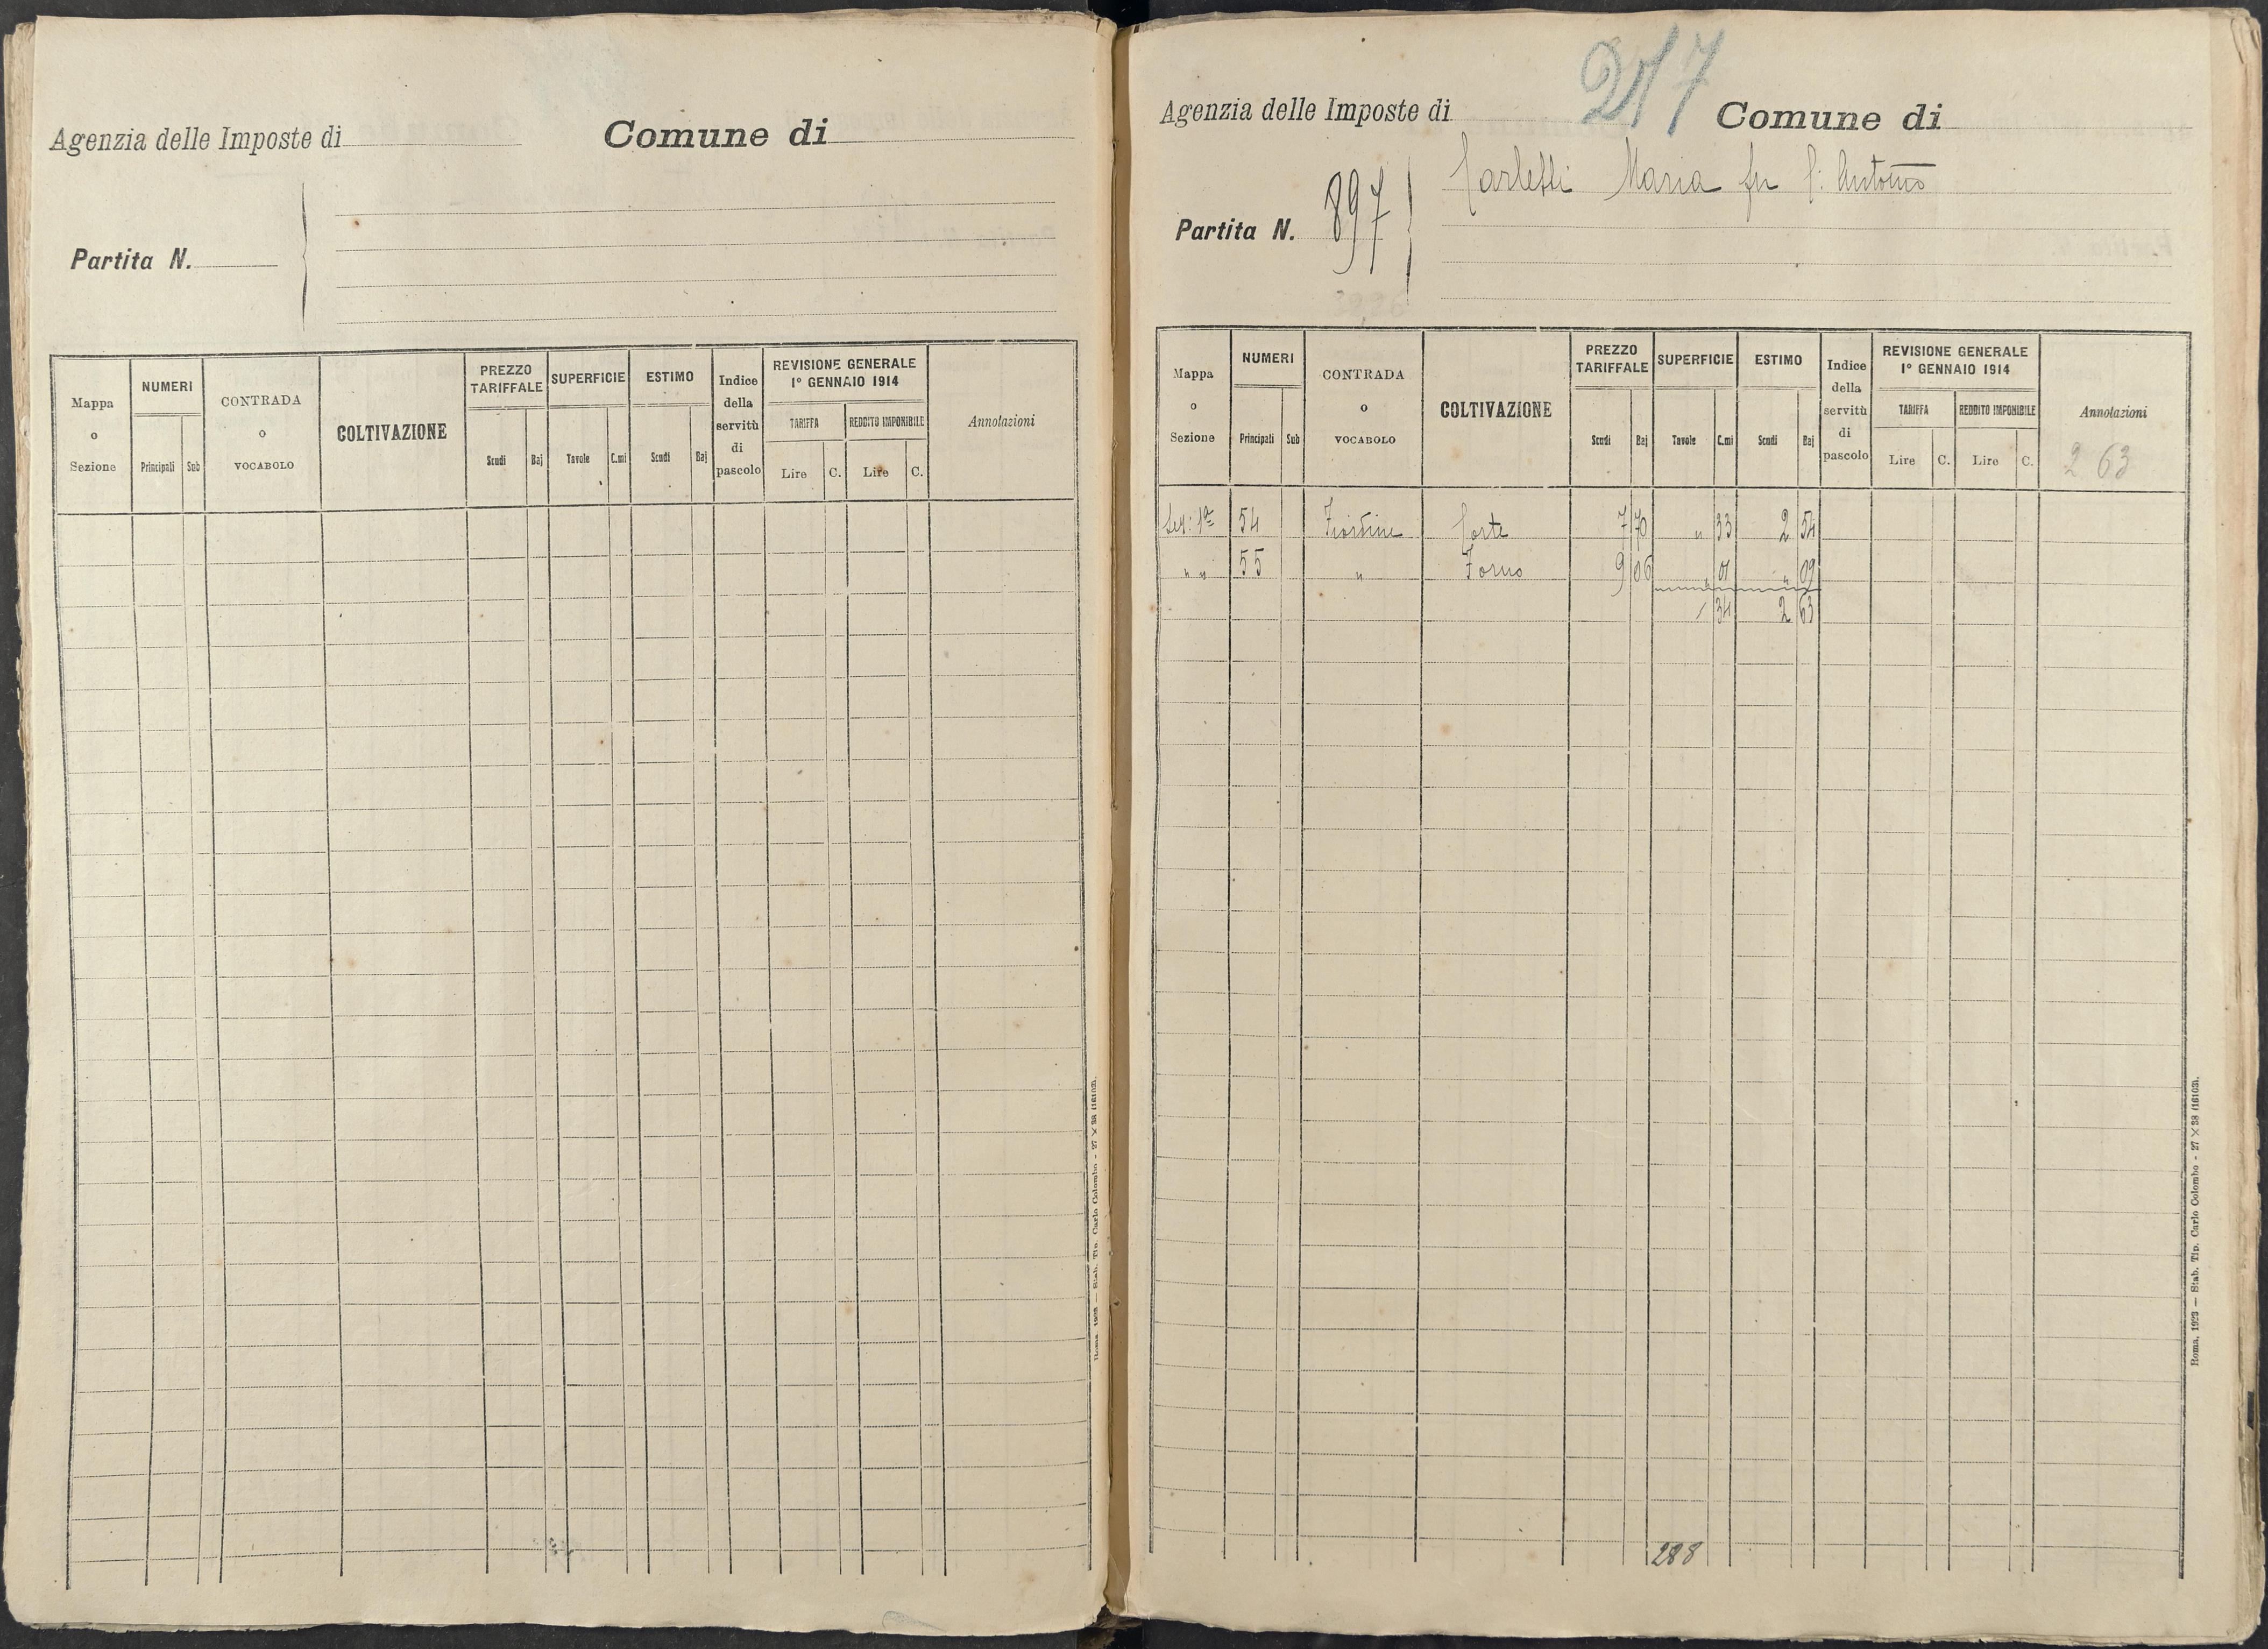 Agenzia delle Imposte di Comune di
Partita N.
Mappa o Sezione
NUMERI
Principali Sub
CONTRADA o VOCABOLO
COLTIVAZIONE
PREZZO TARIFFALE
Scudi Baj
SUPERFICIE
Tavole C.mi
ESTIMO
Scudi Baj
Indice della servitù di pascolo
REVISIONE GENERALE
1° GENNAIO 1914
TARIFFA REDDITO IMPONIBILE
Lire C. Lire C.
Annotazioni
Roma, 1923 — Stab. Tip. Carlo Colombo - 27 × 38 (16103).
217
Agenzia delle Imposte di Comune di
Carletti Maria fu S: Antonio
Partita N. 897
Mappa o Sezione
NUMERI
Principali Sub
CONTRADA o VOCABOLO
COLTIVAZIONE
PREZZO TARIFFALE
Scudi Baj
SUPERFICIE
Tavole C.mi
ESTIMO
Scudi Baj
Indice della servitù di pascolo
REVISIONE GENERALE
1° GENNAIO 1914
TARIFFA REDDITO IMPONIBILE
Lire C. Lire C.
Annotazioni
2 63
Sez: 1ª 54 Corte 7 70 " 33 2 54
" " 55 " Forno 9 06 " 01 " 09
34 2 63
288
Roma, 1923 — Stab. Tip. Carlo Colombo - 27 × 38 (16103).